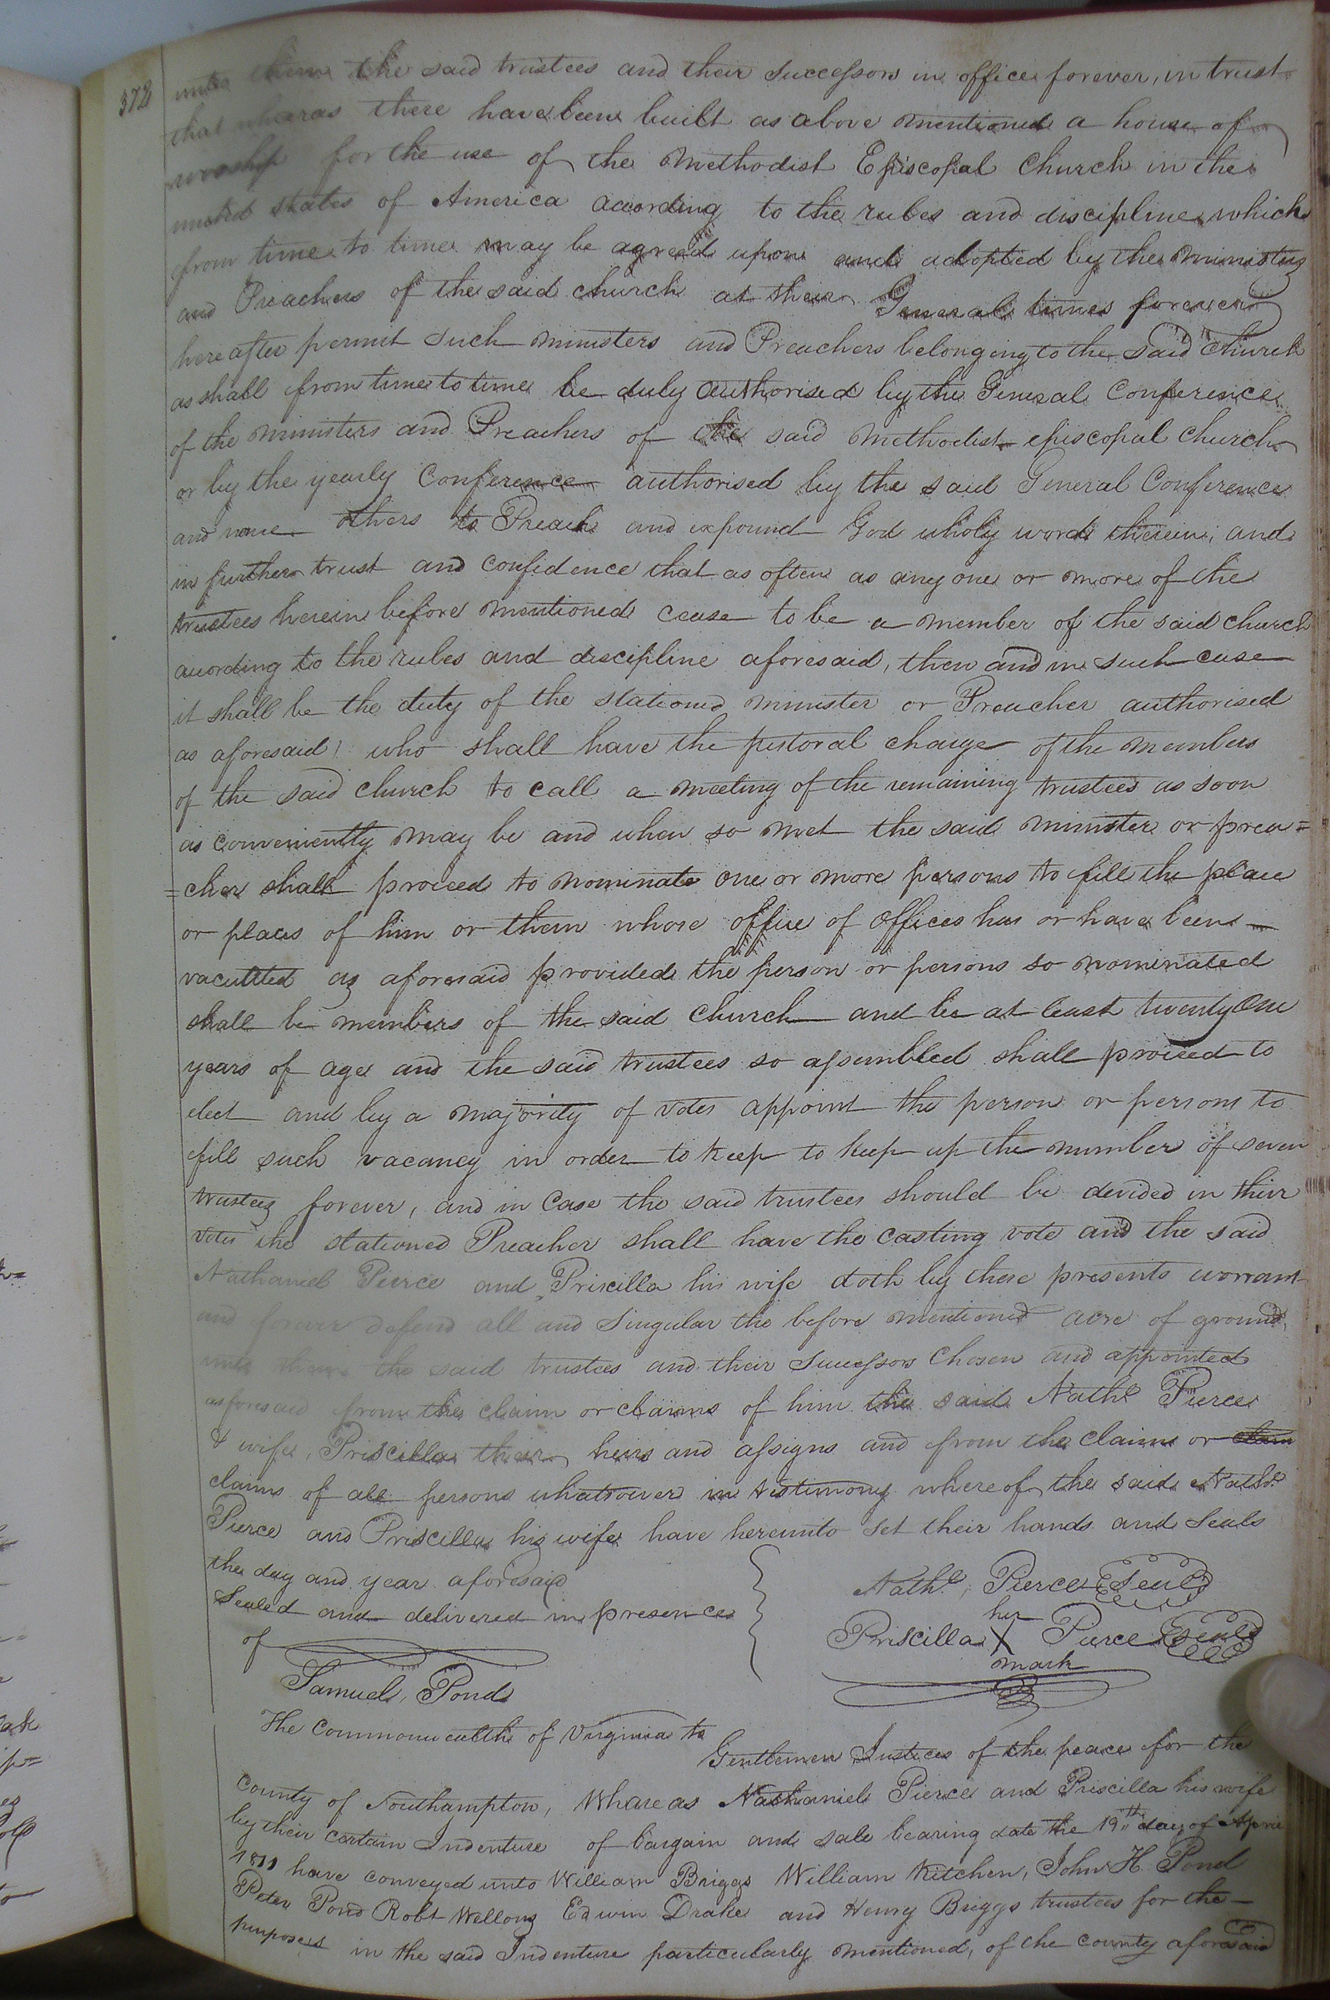 372
unto them the said trustees and their successors in office forever, in trust
that whereas there have been built as above mentioned a house of
worship for the use of the Methodist Episcopal Church in the
united states of America according to the rules and discipline which
from time to time may be agreed upon and adopted by the ministers
and Preachers of the said church at their General times forever
hereafter permit such ministers and Preachers belonging to the said church
as shall from time to time be duly authorised by the General Conference
of the ministers and Preachers of the said Methodist episcopal church
or by the yearly Conference authorised by the said General Conference
and none others to Preach and expound God wholy words therein; and
in further trust and confidence that as often as any one or more of the
trustees herein before mentioned cease to be a member of the said church
acording to the rules and discipline aforesaid, then and in such case
it shall be the duty of the stationed minister or Preacher authorised
as aforesaid, who shall have the pistoral charge of the members
of the said church to call a meeting of the remaining trustees as soon
as conveniently may be and when so met the said minister or prea=
=cher shall proceed to nominate one or more persons to fill the place
or places of him or them whose office of offices has or have been
vacutted as aforesaid provided the person or persons so nominated
shall be members of the said Church and be at least twenty one
years of age and the said trustees so assembled shall proceed to
elect and by a majority of votes appoint the person or persons to
fill such vacancy in order to keep to keep up the number of seven
trustees forever, and in case the said trustees should be devided in their
votes the stationed Preacher shall have the casting vote and the said
Nathaniel Pierce and Priscilla his wife doth by these presents worrant
and forever defend all and singular the before mentioned acre of ground
unto them the said trustees and their Successors Chosen and appointed
asforesaid from the claim or claims of him the said Nathl Pierce
& wife, Priscilla their heirs and assigns and from the claims or claim
claims of all persons whatsoever in testimony whereof the said Nathl
Pierce and Priscilla his wife have hereunto set their hands and seals
the day and year aforesaid
Sealed and delivered in presence
of
Samuel Pond
Nathl Pierce Seal
her
Priscilla X Pierce Seal
mark
The Commonwealth of Virginia to
Gentlemen Justices of the peace for the
County of Southampton, Whareas Nathaniel Pierce and Priscilla his wife
by their certain Indenture of bargain and sale bearing date the 19th day of April
1811 have conveyed unto William Briggs William Kitchen, John H. Pond
Peter Pond Robt Wellons Edwin Drake and Henry Briggs trustees for the
purposes in the said Indenture particularly mentioned, of the county aforesaid